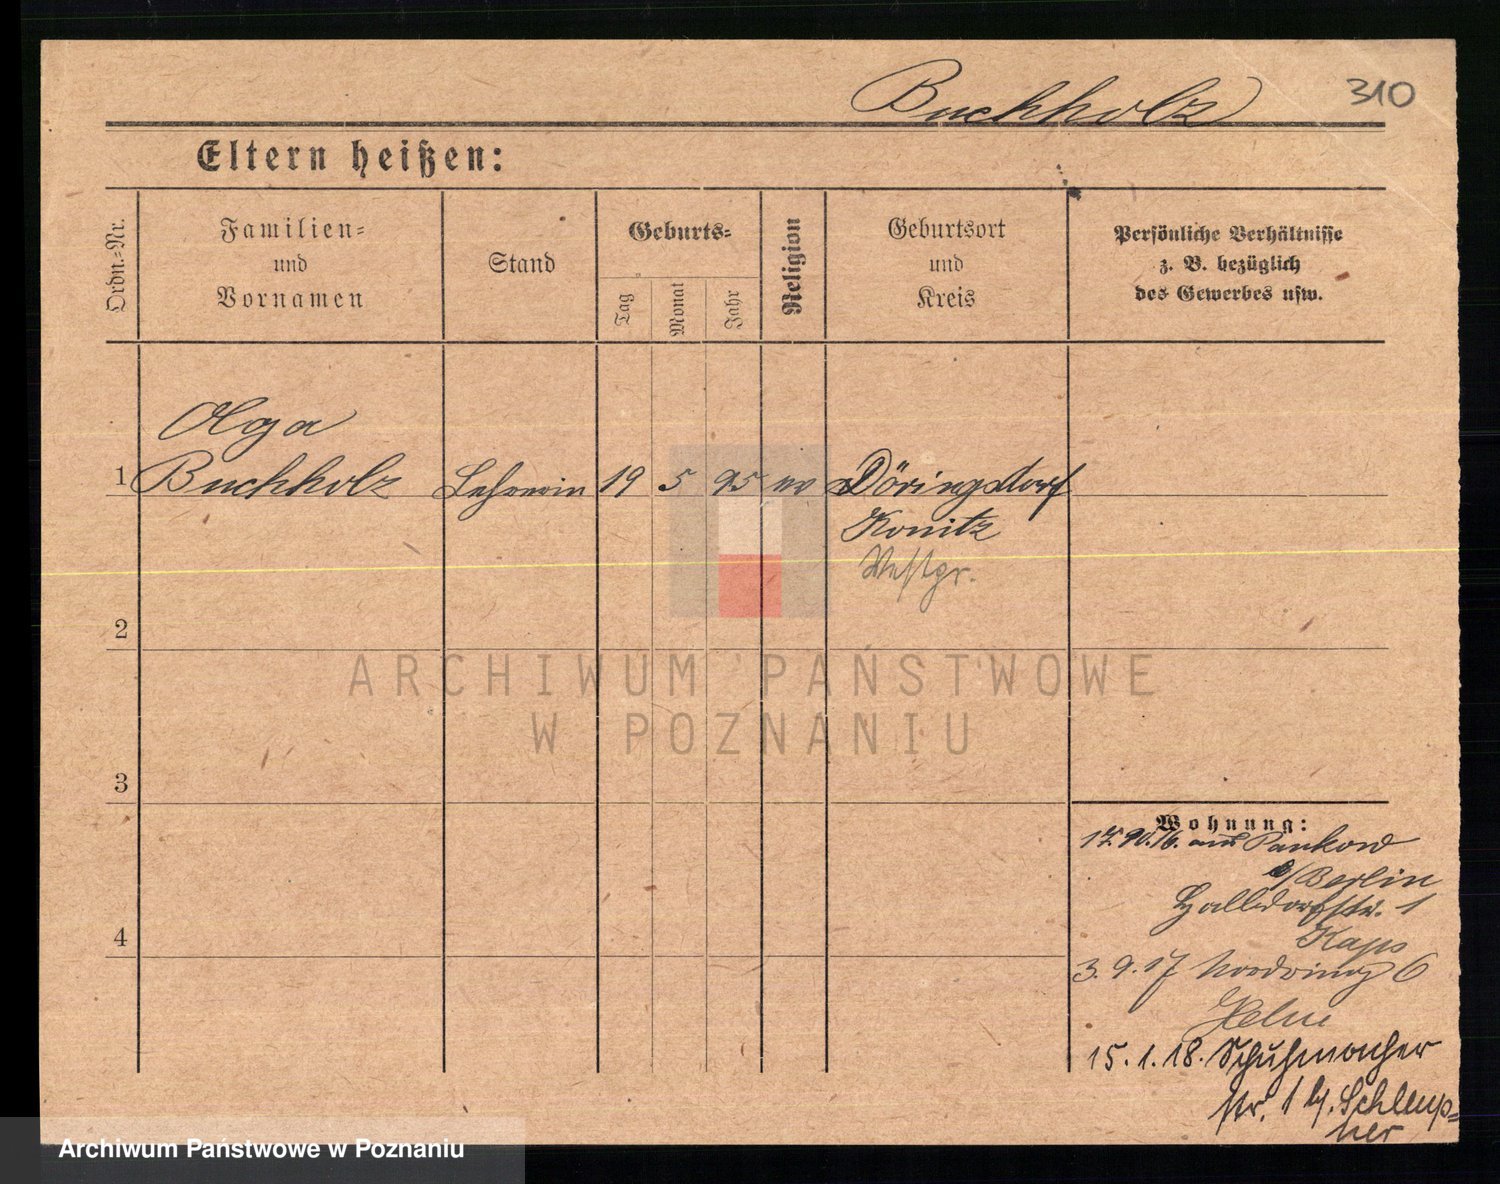 Buchholz 310
Eltern heißen:
Ordn.=Nr.
Familien=
und
Vornamen
Stand
Geburts=
Tag
Monat
Jahr
Religion
Geburtsort
und
Kreis
Persönliche Verhältnisse
z. B. bezüglich
des Gewerbes usw.
Olga
1 Buchholz Lehrerin 19 5 95 ev Döringsdorf
Konitz
Westpr.
2
3
4
ARCHIWUM PAŃSTWOWE
W POZNANIU
Wohnung:
aus Pankow
b/Berlin
1
Kaps
3.9.17 Nordring 6
15.1.18. Schuhmacher
str. 1 b/.
Archiwum Państwowe w Poznaniu